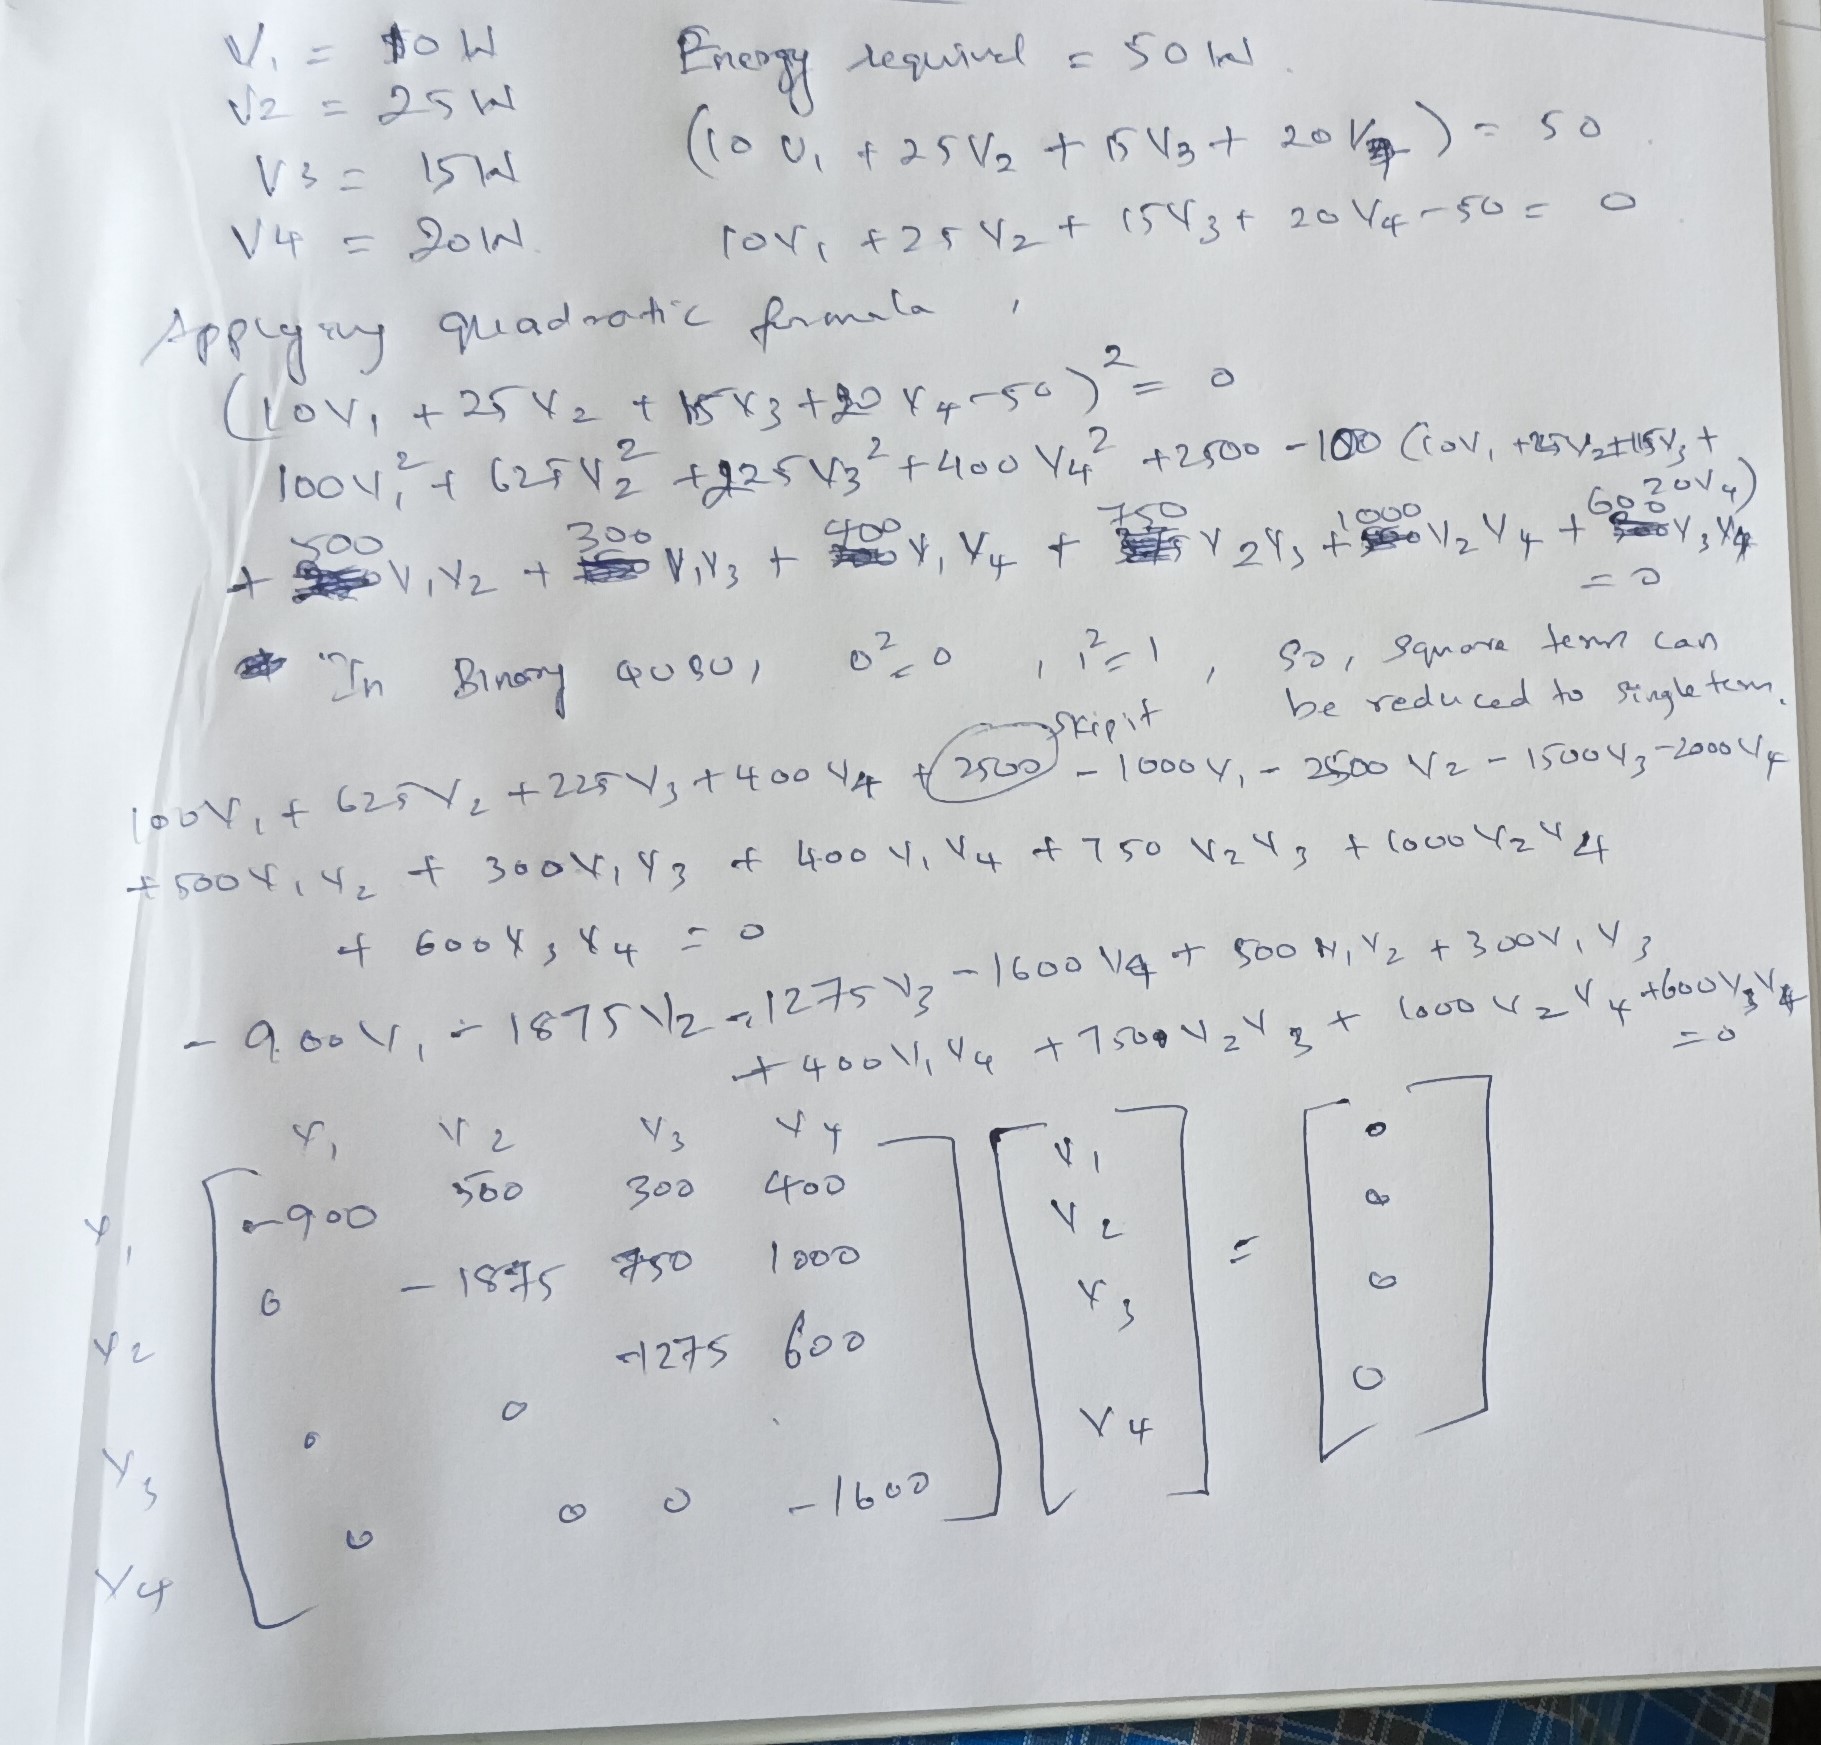 V1 = 10 W Energy required = 50 W.
V2 = 25 W
(10 V1 + 25 V2 + 15 V3 + 20 V4) = 50
V3 = 15 W
V4 = 20 W.
10V1 + 25 V2 + 15V3 + 20 V4 - 50 = 0
Applying quadratic formula,
(10V1 + 25 V2 + 15 V3 + 20 V4 - 50)² = 0
100V1² + 625 V2² + 225 V3² + 400 V4² + 2500 - 100 (10V1 + 25V2 + 15V3 + 20V4)
+ 500 V1V2 + 300 V1V3 + 400 V1V4 + 750 V2V3 + 1000 V2V4 + 600 V3V4 = 0
In Binary QUBO, 0² = 0, 1² = 1, So, square term can
be reduced to single term.
skip it
100V1 + 625V2 + 225V3 + 400V4 + 2500 - 1000V1 - 2500 V2 - 1500V3 - 2000V4
+ 500V1V2 + 300V1V3 + 400 V1V4 + 750 V2V3 + 1000V2V4
+ 600V3V4 = 0
- 900V1 - 1875V2 - 1275V3 - 1600V4 + 500 V1V2 + 300V1V3
+ 400V1V4 + 750 V2V3 + 1000 V2V4 + 600V3V4 = 0
V1 V2 V3 V4
V1 -900 500 300 400 V1 0
V2 0 -1875 750 1000 V2 0
-1275 600 V3 = 0
V3 0 0 V4 0
V4 0 0 0 -1600